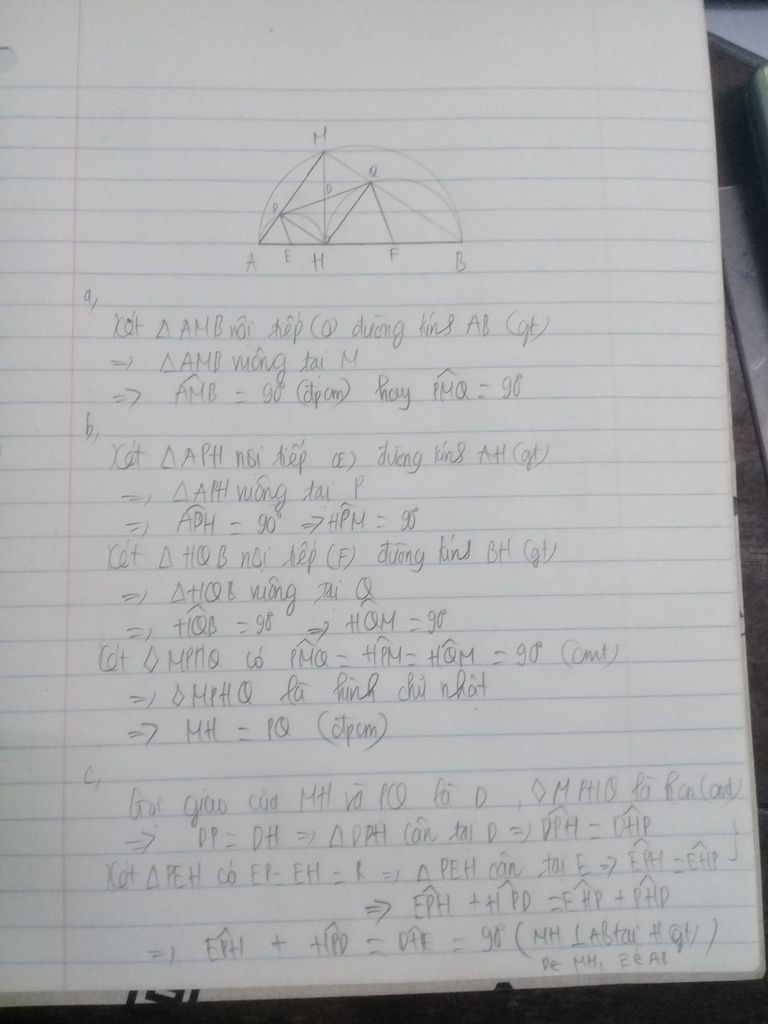 M
Q
D
P
A E H F B
a,
Xét △AMB nội tiếp (O) đường kính AB (gt)
=> △AMB vuông tại M
=> AM̂B = 90° (đpcm) hay PM̂Q = 90°
b,
Xét △APH nội tiếp (E) đường kính AH (gt)
=> △APH vuông tại P
=> AP̂H = 90° => HP̂M = 90°
Xét △HQB nội tiếp (F) đường kính BH (gt)
=> △HQB vuông tại Q
=> HQ̂B = 90° => HQ̂M = 90°
Xét ◇MPHQ có PM̂Q = HP̂M = HQ̂M = 90° (cmt)
=> ◇MPHQ là hình chữ nhật
=> MH = PQ (đpcm)
c,
Gọi giao của MH và PQ là D, ◇MPHQ là hcn (cmt)
=> DP = DH => △DPH cân tại D => DP̂H = DĤP
Xét △PEH có EP = EH = R => △PEH cân tại E => EP̂H = EĤP
=> EP̂H + HP̂D = EĤP + PĤD
=> EP̂H + HP̂D = DĤE = 90° (MH ⊥ AB tại H gt)
D∈ MH, E∈ AB